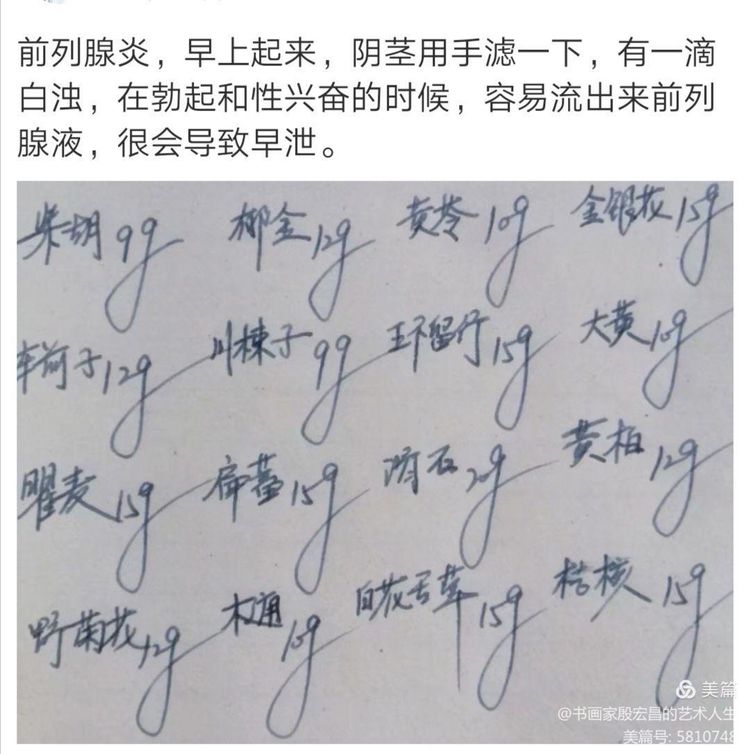 前列腺炎，早上起来，阴茎用手滤一下，有一滴
白浊，在勃起和性兴奋的时候，容易流出来前列
腺液，很会导致早泄。
柴胡9g 郁金12g 黄芩10g 金银花15g
车前子12g 川楝子9g 王不留行15g 大黄10g
瞿麦15g 扁蓄15g 滑石20g 黄柏12g
野菊花12g 木通10g 白花舌草15g 桔核15g
美篇
@书画家殷宏昌的艺术人生
美篇号: 5810748